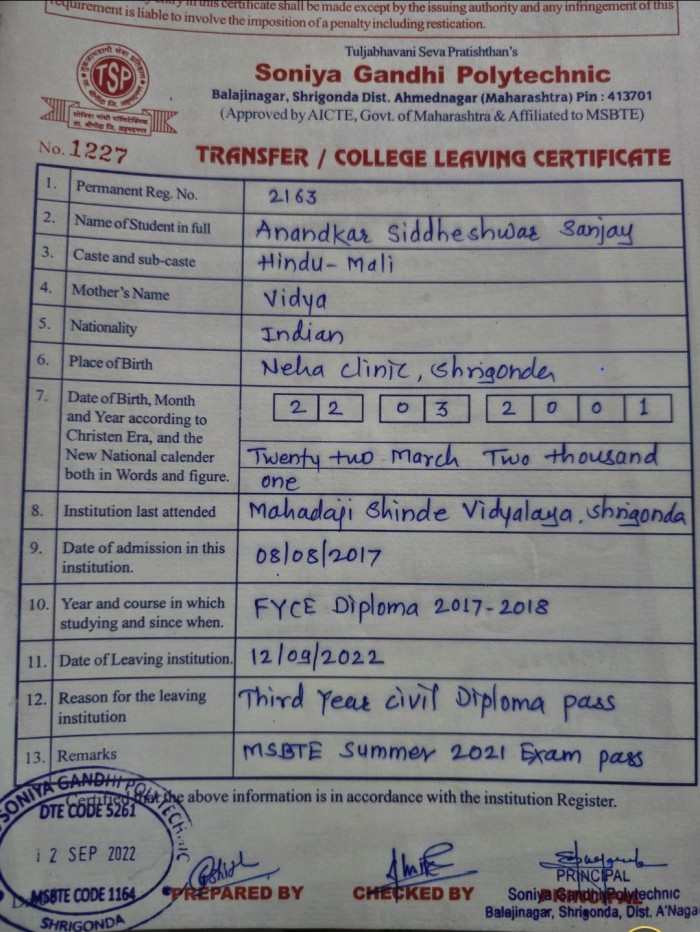 requirement is liable to involve the imposition of a penalty including restication.
TSP
Tuljabhavani Seva Pratishthan's
Soniya Gandhi Polytechnic
Balajinagar, Shrigonda Dist. Ahmednagar (Maharashtra) Pin : 413701
(Approved by AICTE, Govt. of Maharashtra & Affiliated to MSBTE)
No. 1227
TRANSFER / COLLEGE LEAVING CERTIFICATE
1. Permanent Reg. No. 2163
2. Name of Student in full Anandkar Siddheshwar Sanjay
3. Caste and sub-caste Hindu- Mali
4. Mother's Name Vidya
5. Nationality Indian
6. Place of Birth Neha Clinic, Shrigonda
7. Date of Birth, Month 2 2 0 3 2 0 0 1
and Year according to
Christen Era, and the
New National calender Twenty two March Two thousand
both in Words and figure. one
8. Institution last attended Mahadaji Shinde Vidyalaya, Shrigonda
9. Date of admission in this 08/08/2017
institution.
10. Year and course in which FYCE Diploma 2017-2018
studying and since when.
11. Date of Leaving institution. 12/09/2022
12. Reason for the leaving Third Year Civil Diploma pass
institution
13. Remarks MSBTE Summer 2021 Exam pass
Certified that the above information is in accordance with the institution Register.
SONIYA GANDHI POLYTECHNIC
DTE CODE 5261
12 SEP 2022
MSBTE CODE 1164
SHRIGONDA
PREPARED BY
CHECKED BY
PRINCIPAL
PRINCIPAL
Soniya Gandhi Polytechnic
Balajinagar, Shrigonda, Dist. A'Naga